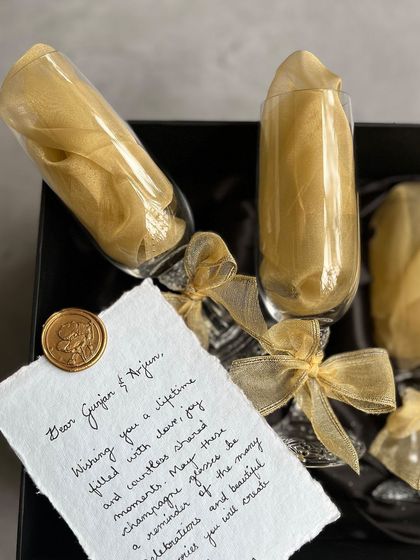 Dear Gunjan & Arjun,
Wishing you a lifetime
filled with love, joy
and countless shared
moments. May these
champagne glasses be
a reminder of the many
celebrations and beautiful
you will create